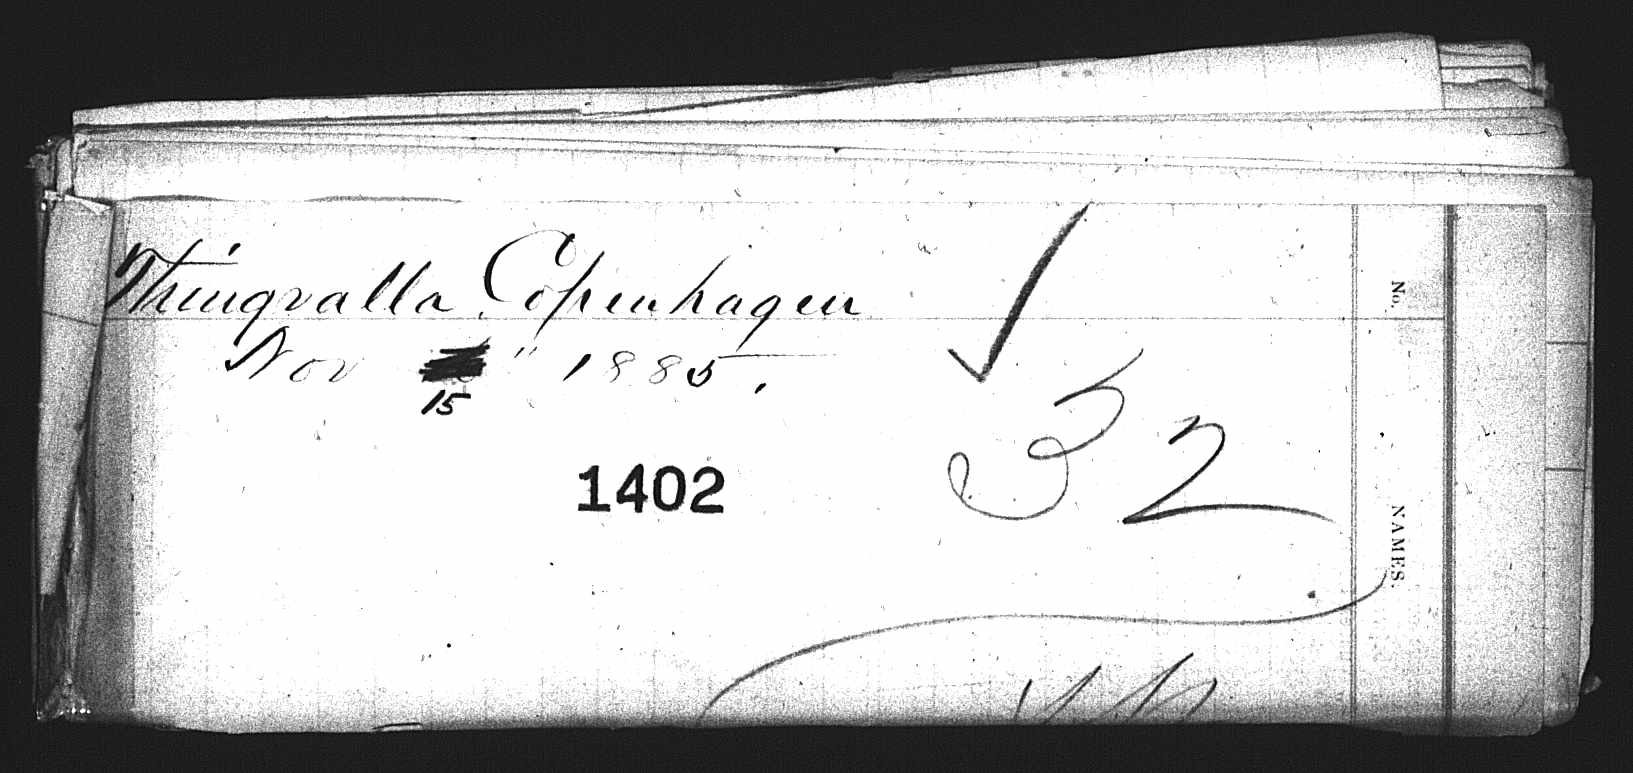 Thingvalla. Copenhagen
Nov " 1885.
15
1402
32
No.
NAMES.